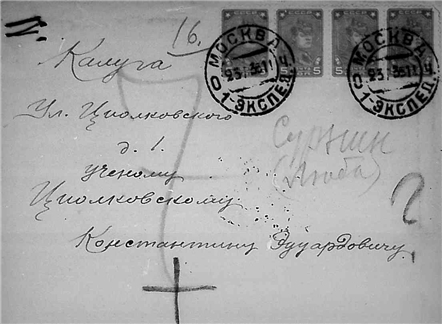 16.
Калуга
МОСКВА
1-ЭКСПЕД.
МОСКВА
1-ЭКСПЕД.
5 5 5
Ул. Циолковского
д. 1.
ученому
Циолковскому
Константину Эдуардовичу
(Люба)
?